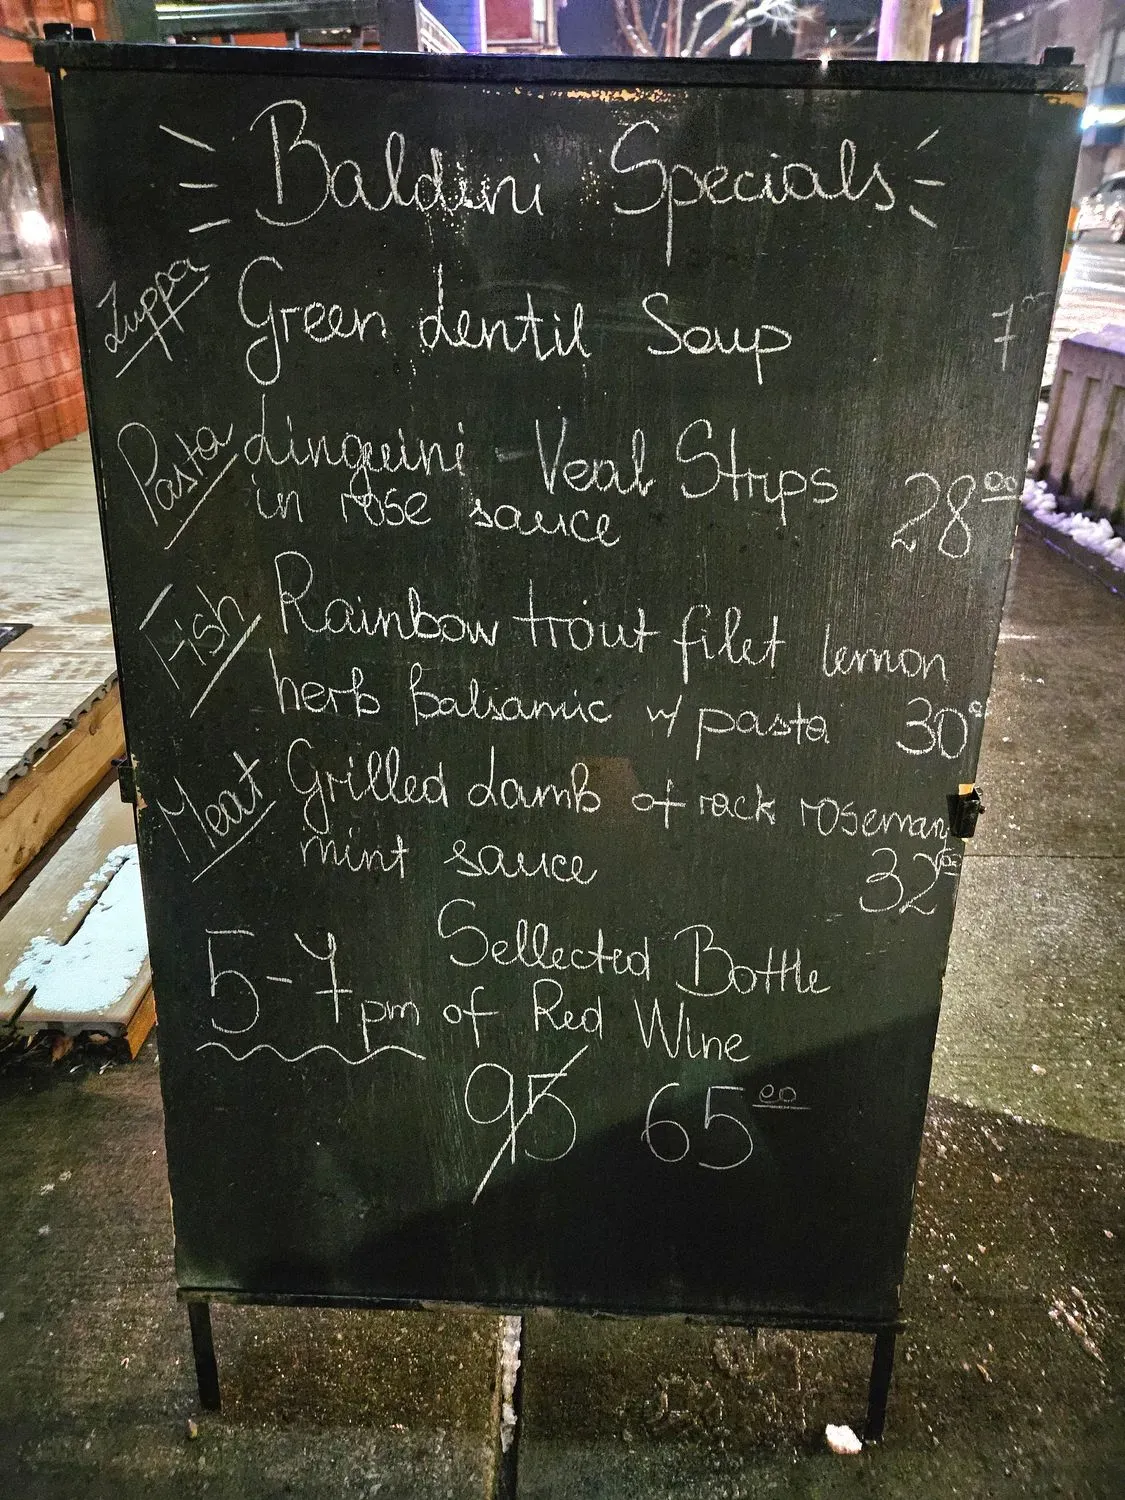 Baldini Specials
Zuppa Green Lentil Soup 7
Pasta Linguini - Veal Strips
in rose sauce 28.00
Fish Rainbow trout filet lemon
herb Balsamic w/ pasta 30
Meat Grilled Lamb of rack roseman
mint sauce 32.00
5-7pm Sellected Bottle
of Red Wine
95 65.00